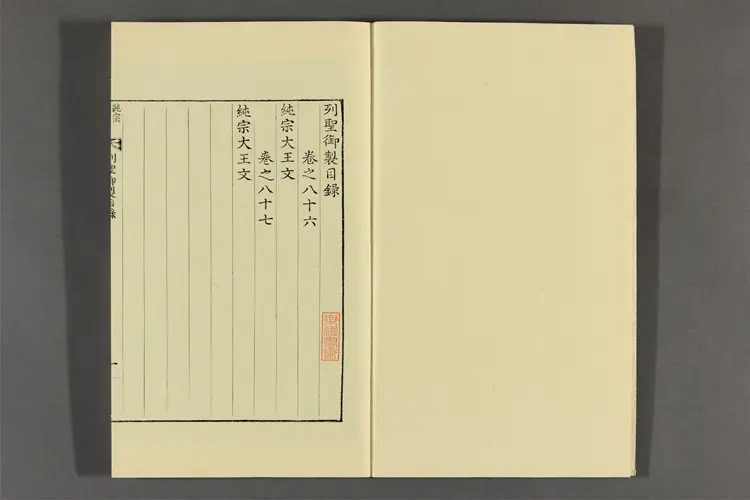 列聖御製目錄
卷之八十六
純宗大王文
卷之八十七
純宗大王文
純宗
列聖御製目錄
一